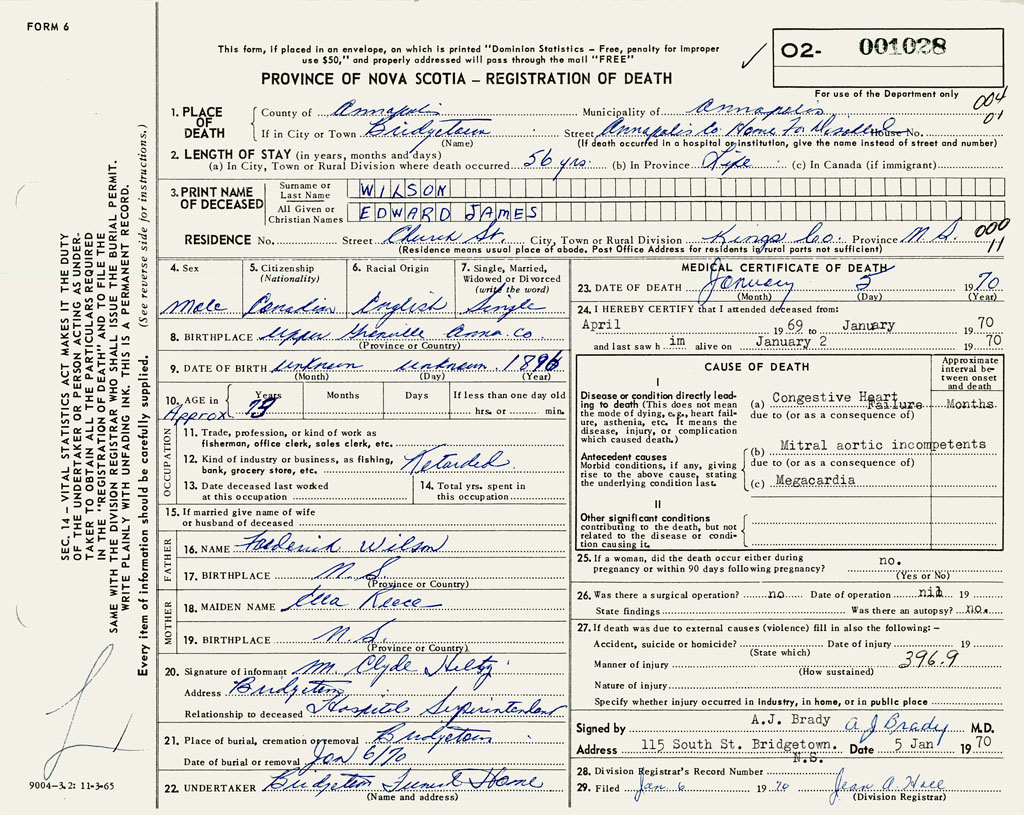 FORM 6
This form, if placed in an envelope, on which is printed "Dominion Statistics – Free, penalty for improper
use $50," and properly addressed will pass through the mail "FREE"
PROVINCE OF NOVA SCOTIA – REGISTRATION OF DEATH
02- 001028
For use of the Department only
004
01
1. PLACE OF DEATH
County of Annapolis Municipality of Annapolis
If in City or Town Bridgetown Street Annapolis Co Home For Disabled House No.
(Name) (If death occurred in a hospital or institution, give the name instead of street and number)
2. LENGTH OF STAY (in years, months and days)
(a) In City, Town or Rural Division where death occurred 56 yrs. (b) In Province Life (c) In Canada (if immigrant)
3. PRINT NAME OF DECEASED
Surname or Last Name WILSON
All Given or Christian Names EDWARD JAMES
RESIDENCE No. Street Church St. City, Town or Rural Division Kings Co. Province N.S.
000
11
(Residence means usual place of abode. Post Office Address for residents in rural parts not sufficient)
4. Sex
Male
5. Citizenship (Nationality)
Canadian
6. Racial Origin
English
7. Single, Married, Widowed or Divorced (write the word)
Single
8. BIRTHPLACE Upper Granville Anna. Co
(Province or Country)
9. DATE OF BIRTH unknown unknown 1896
(Month) (Day) (Year)
10. AGE in Approx
Years 73 Months Days If less than one day old
hrs. or min.
OCCUPATION
11. Trade, profession, or kind of work as
fisherman, office clerk, sales clerk, etc.
12. Kind of industry or business, as fishing,
bank, grocery store, etc. Retarded
13. Date deceased last worked
at this occupation
14. Total yrs. spent in
this occupation
15. If married give name of wife
or husband of deceased
FATHER
16. NAME Frederick Wilson
17. BIRTHPLACE N.S.
(Province or Country)
MOTHER
18. MAIDEN NAME Ella Reece
19. BIRTHPLACE N.S.
(Province or Country)
20. Signature of informant M. Clyde Hiltz
Address Bridgetown
Relationship to deceased Hospital Superintendent
21. Place of burial, cremation or removal Bridgetown
Date of burial or removal Jan 6/70
22. UNDERTAKER Bridgetown Funeral Home
(Name and address)
MEDICAL CERTIFICATE OF DEATH
23. DATE OF DEATH January 5 1970
(Month) (Day) (Year)
24. I HEREBY CERTIFY that I attended deceased from:
April 1969 to January 1970
and last saw h im alive on January 2 1970
CAUSE OF DEATH
Approximate interval between onset and death
I
Disease or condition directly leading to death (This does not mean
the mode of dying, e.g., heart failure, asthenia, etc. It means the
disease, injury, or complication
which caused death.)
(a) Congestive Heart Failure Months
due to (or as a consequence of)
Antecedent causes
Morbid conditions, if any, giving
rise to the above cause, stating
the underlying condition last.
(b) Mitral aortic incompetents
due to (or as a consequence of)
(c) Megacardia
II
Other significant conditions
contributing to the death, but not
related to the disease or condition causing it.
25. If a woman, did the death occur either during
pregnancy or within 90 days following pregnancy? no.
(Yes or No)
26. Was there a surgical operation? no Date of operation nil 19
State findings Was there an autopsy? no.
27. If death was due to external causes (violence) fill in also the following: –
Accident, suicide or homicide? Date of injury 19
(State which)
Manner of injury 396.9
(How sustained)
Nature of injury
Specify whether injury occurred in Industry, in home, or in public place
Signed by A.J. Brady A J Brady M.D.
Address 115 South St. Bridgetown. N.S. Date 5 Jan 1970
28. Division Registrar's Record Number
29. Filed Jan 6 1970 Jean A. Hall
(Division Registrar)
SEC. 14 – VITAL STATISTICS ACT MAKES IT THE DUTY
OF THE UNDERTAKER OR PERSON ACTING AS UNDERTAKER TO OBTAIN ALL THE PARTICULARS REQUIRED
IN THE "REGISTRATION OF DEATH" AND TO FILE THE
SAME WITH THE DIVISION REGISTRAR WHO SHALL ISSUE THE BURIAL PERMIT.
WRITE PLAINLY WITH UNFADING INK. THIS IS A PERMANENT RECORD.
Every item of information should be carefully supplied. (See reverse side for instructions.)
9004-3.2: 11-3-65